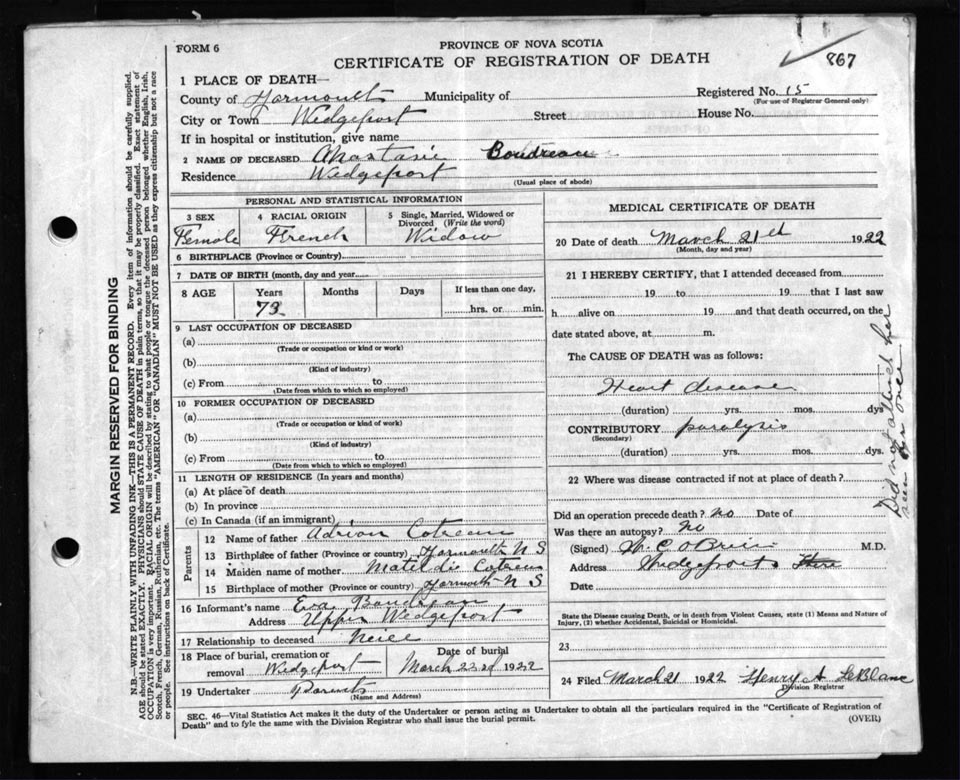 FORM 6
PROVINCE OF NOVA SCOTIA
CERTIFICATE OF REGISTRATION OF DEATH
867
1 PLACE OF DEATH—
County of Yarmouth Municipality of
Registered No. 15
(For use of Registrar General only)
City or Town Wedgeport Street House No.
If in hospital or institution, give name
2 NAME OF DECEASED Anastasie Boudreau
Residence Wedgeport
(Usual place of abode)
PERSONAL AND STATISTICAL INFORMATION
3 SEX
Female
4 RACIAL ORIGIN
French
5 Single, Married, Widowed or
Divorced (Write the word)
Widow
6 BIRTHPLACE (Province or Country)
7 DATE OF BIRTH (month, day and year
8 AGE
Years
73
Months
Days
If less than one day,
hrs. or min.
9 LAST OCCUPATION OF DECEASED
(a)
(Trade or occupation or kind or work)
(b)
(Kind of industry)
(c) From to
(Date from which to which so employed)
10 FORMER OCCUPATION OF DECEASED
(a)
(Trade or occupation or kind of work)
(b)
(Kind of Industry)
(c) From to
(Date from which to which so employed)
11 LENGTH OF RESIDENCE (In years and months)
(a) At place of death
(b) In province
(c) In Canada (if an immigrant)
Parents
12 Name of father Adrian Cotreau
13 Birthplace of father (Province or country) Yarmouth N S
14 Maiden name of mother Matildis Cotreau
15 Birthplace of mother (Province or country) Yarmouth N S
16 Informant's name Eva Boudreau
Address Upper Wedgeport
17 Relationship to deceased Neice
18 Place of burial, cremation or
removal Wedgeport
Date of burial
March 23rd 1922
19 Undertaker Parents
(Name and Address)
MEDICAL CERTIFICATE OF DEATH
20 Date of death March 21st 1922
(Month, day and year)
21 I HEREBY CERTIFY, that I attended deceased from
19 to 19 that I last saw
h alive on 19 and that death occurred, on the
date stated above, at m.
The CAUSE OF DEATH was as follows:
Heart disease
(duration) yrs. mos. dys
CONTRIBUTORY paralysis
(Secondary)
(duration) yrs. mos. dys.
Did not attend her
22 Where was disease contracted if not at place of death?
Did an operation precede death? no Date of
Was there an autopsy? No
(Signed) M.E. O'Brien M.D.
Address Wedgeport
Date
State the Disease causing Death, or in death from Violent Causes, state (1) Means and Nature of
Injury, (2) whether Accidental, Suicidal or Homicidal.
23
24 Filed March 21 1922 Henry A LeBlanc
Division Registrar
SEC. 46—Vital Statistics Act makes it the duty of the Undertaker or person acting as Undertaker to obtain all the particulars required in the "Certificate of Registration of
Death" and to fyle the same with the Division Registrar who shall issue the burial permit.
(OVER)
MARGIN RESERVED FOR BINDING
N.B.—WRITE PLAINLY WITH UNFADING INK—THIS IS A PERMANENT RECORD. Every item of information should be carefully supplied.
AGE should be stated EXACTLY. PHYSICIANS should STATE CAUSE OF DEATH in plain terms, so that it may be properly classified. Exact statement of
OCCUPATION is very important. RACIAL ORIGIN will be described by stating to what people or tongue the deceased person belonged whether English, Irish,
Scotch, French, German, Russian, Ruthenian, etc. The terms "AMERICAN" OR "CANADIAN" MUST NOT BE USED as they express citizenship but not a race
or people. See instructions on back of Certificate.